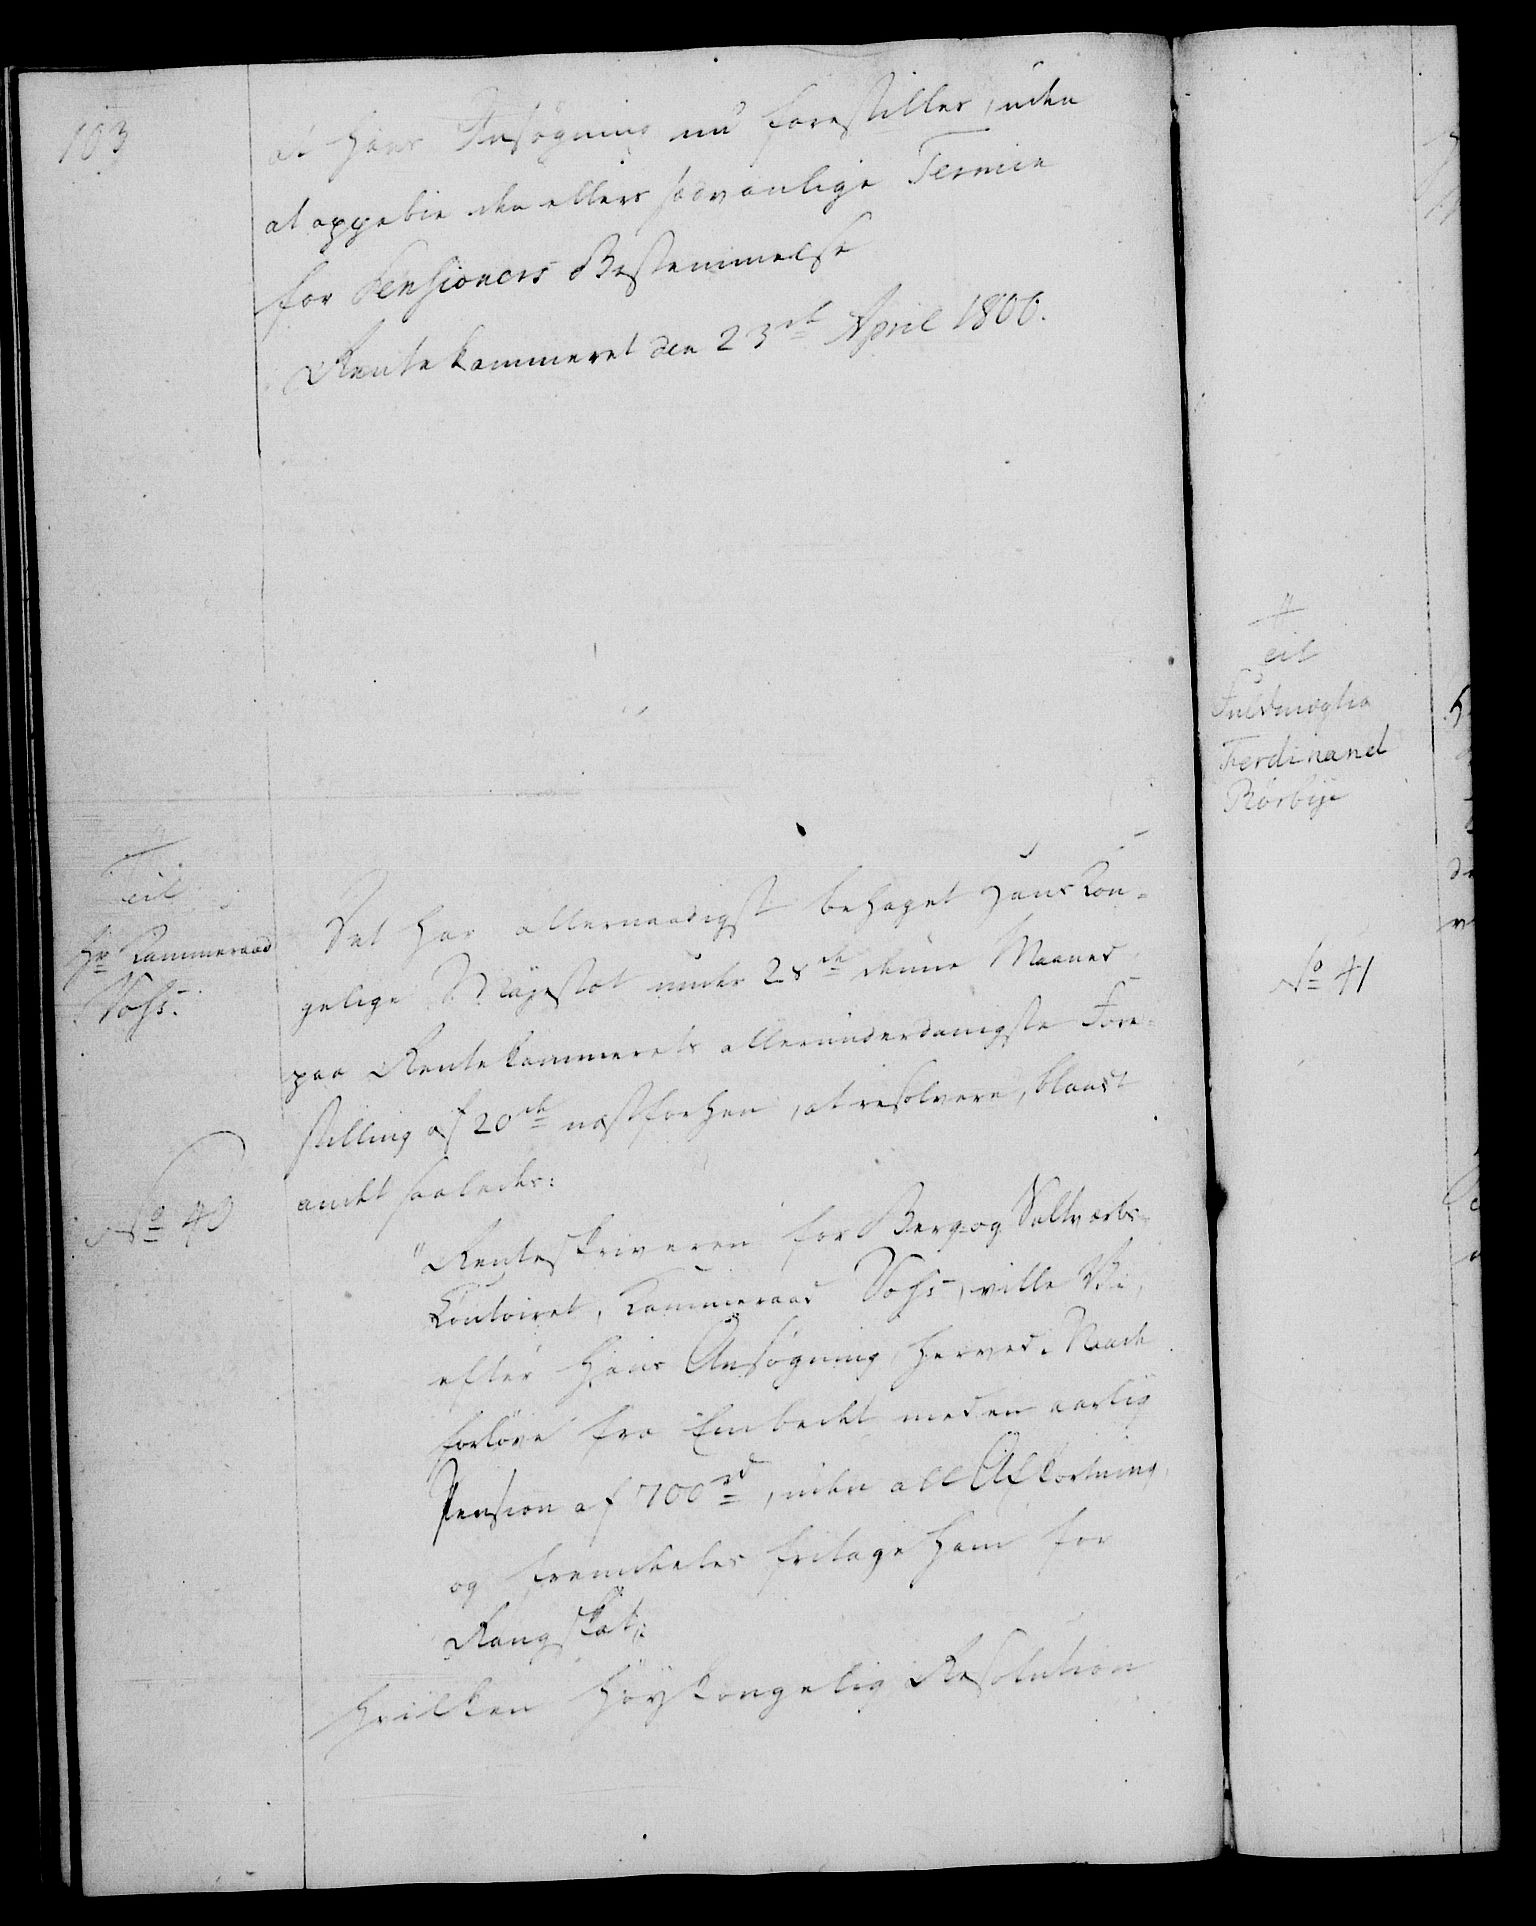 103
at hans Ansøgning nu forestilles, uden
at oppebie den ellers sædvanlige Termin
for Pensioners Bestemmelse
Rentekammeret den 23de April 1806.
Til
Hr Kammeraad
Vohs.
No 40
Det har allernaadigst behaget Hans Kon-
gelige Majestæt under 28de denne Maaned,
paa Rentekammerets allerunderdanigste Fore-
stilling af 20de næstforhen, at resolvere, blandt
andet saaledes:
"Renteskriveren for Berg- og Saltværks-
Contoiret, Kammeraad Vohs, ville Vi,
efter hans Ansøgning, herved i Naade
forløve fra Embedet med en aarlig
Pension af 700 rd, uden all Afkortning,
og fremdeles fritage ham for
Rangskat;
Hvilken høykongelig Resolution
Til
Fuldmægtig
Ferdinand
Rørbye
No 41